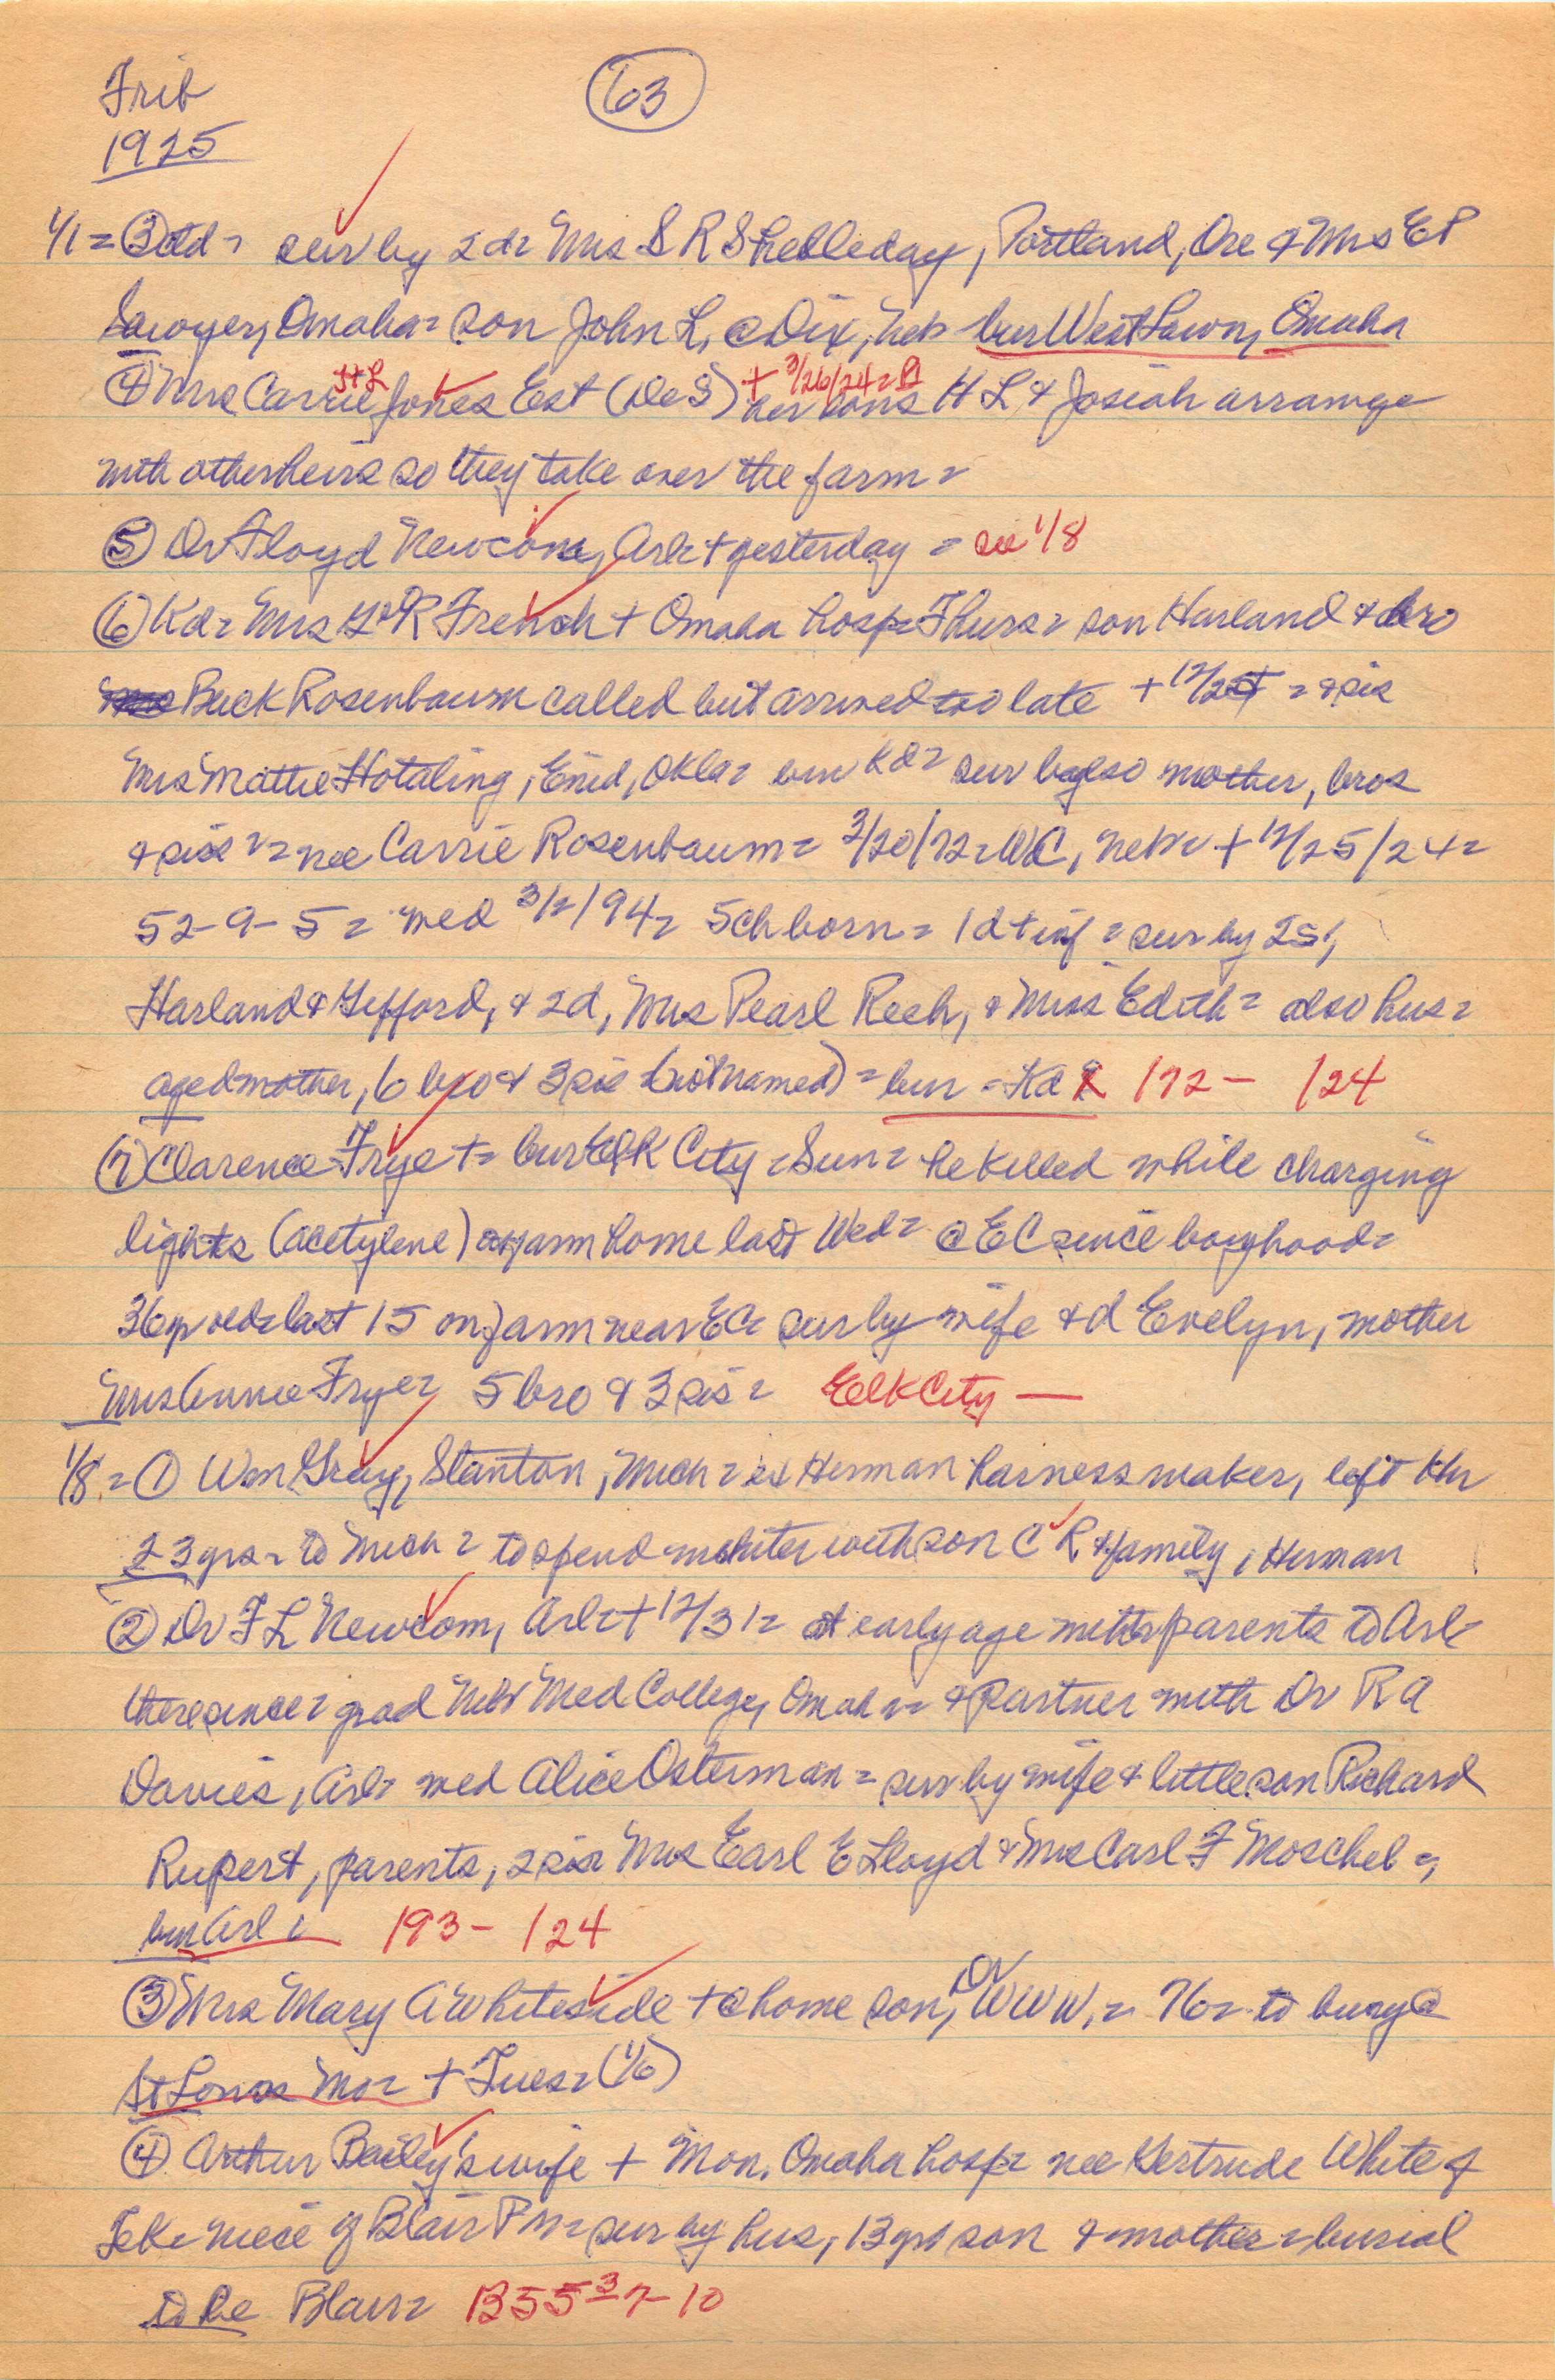 Trib
63
1925
1/1 = ③ctd = sur by 2 d = Mrs S R Shelleday, Portland, Ore & Mrs E P
Sawyer, Omaha = son John L, @ Dix, Neb bur West Lawn, Omaha
④ Mrs Carrie Jones Est (De S) + 3/26/24 = her sons H L & Josiah arrange
with other heirs so they take over the farm =
⑤ Dr Floyd Newcom, Arl = + yesterday = see 1/8
⑥ Kd = Mrs R French + Omaha hosp = Thurs = son Harland & bro
Buck Rosenbaum called but arrived too late + 12/25 = & sis
Mrs Mattie Hotaling, Enid, Okla = bur Kd = sur by also mother, bros
& sis = = nee Carrie Rosenbaum = 3/20/72 = WC, Neb = + 12/25/24 =
52-9-5 = med 3/2/94 = 5 ch born = 1 d + inf = sur by 2 s,
Harland & Gifford, & 2 d, Mrs Pearl Rech, & Miss Edith = also hus =
aged mother, 6 bro & 3 sis (not named) = bur = Kd 172 - 124
⑦ Clarence Frye + = bur Elk City = Sun = he killed while charging
lights (acetylene) @ farm home last Wed = @ EC since boyhood =
36 yr old = last 15 on farm near EC = sur by wife & d Evelyn, mother
Mrs Annie Frye = 5 bro & 3 sis = Elk City —
1/8 = ① Wm Gray, Stanton, Mich = ex Herman harness maker, left Hr
23 yrs = to Mich = to spend winter with son C R & family, Herman
② Dr F L Newcom, Arl = + 12/31 = at early age with parents to Arl =
there since = grad Neb Med College, Omaha = & partner with Dr R A
Davies, Arl = med Alice Osterman = sur by wife & little son Richard
Rupert, parents, 2 sis Mrs Earl E Lloyd & Mrs Carl F Moschel =,
bur Arl = 193 - 124
③ Mrs Mary A Whiteside + @ home son, Dr W W W, = 76 = to bury @
St Louis Mo = + Tues = (1/6)
④ Arthur Bailey's wife + Mon. Omaha hosp = nee Gertrude White of
Tek = niece of Blair P M = sur by hus, 13 yr son & mother = burial
to be Blair = B55 3-7-10